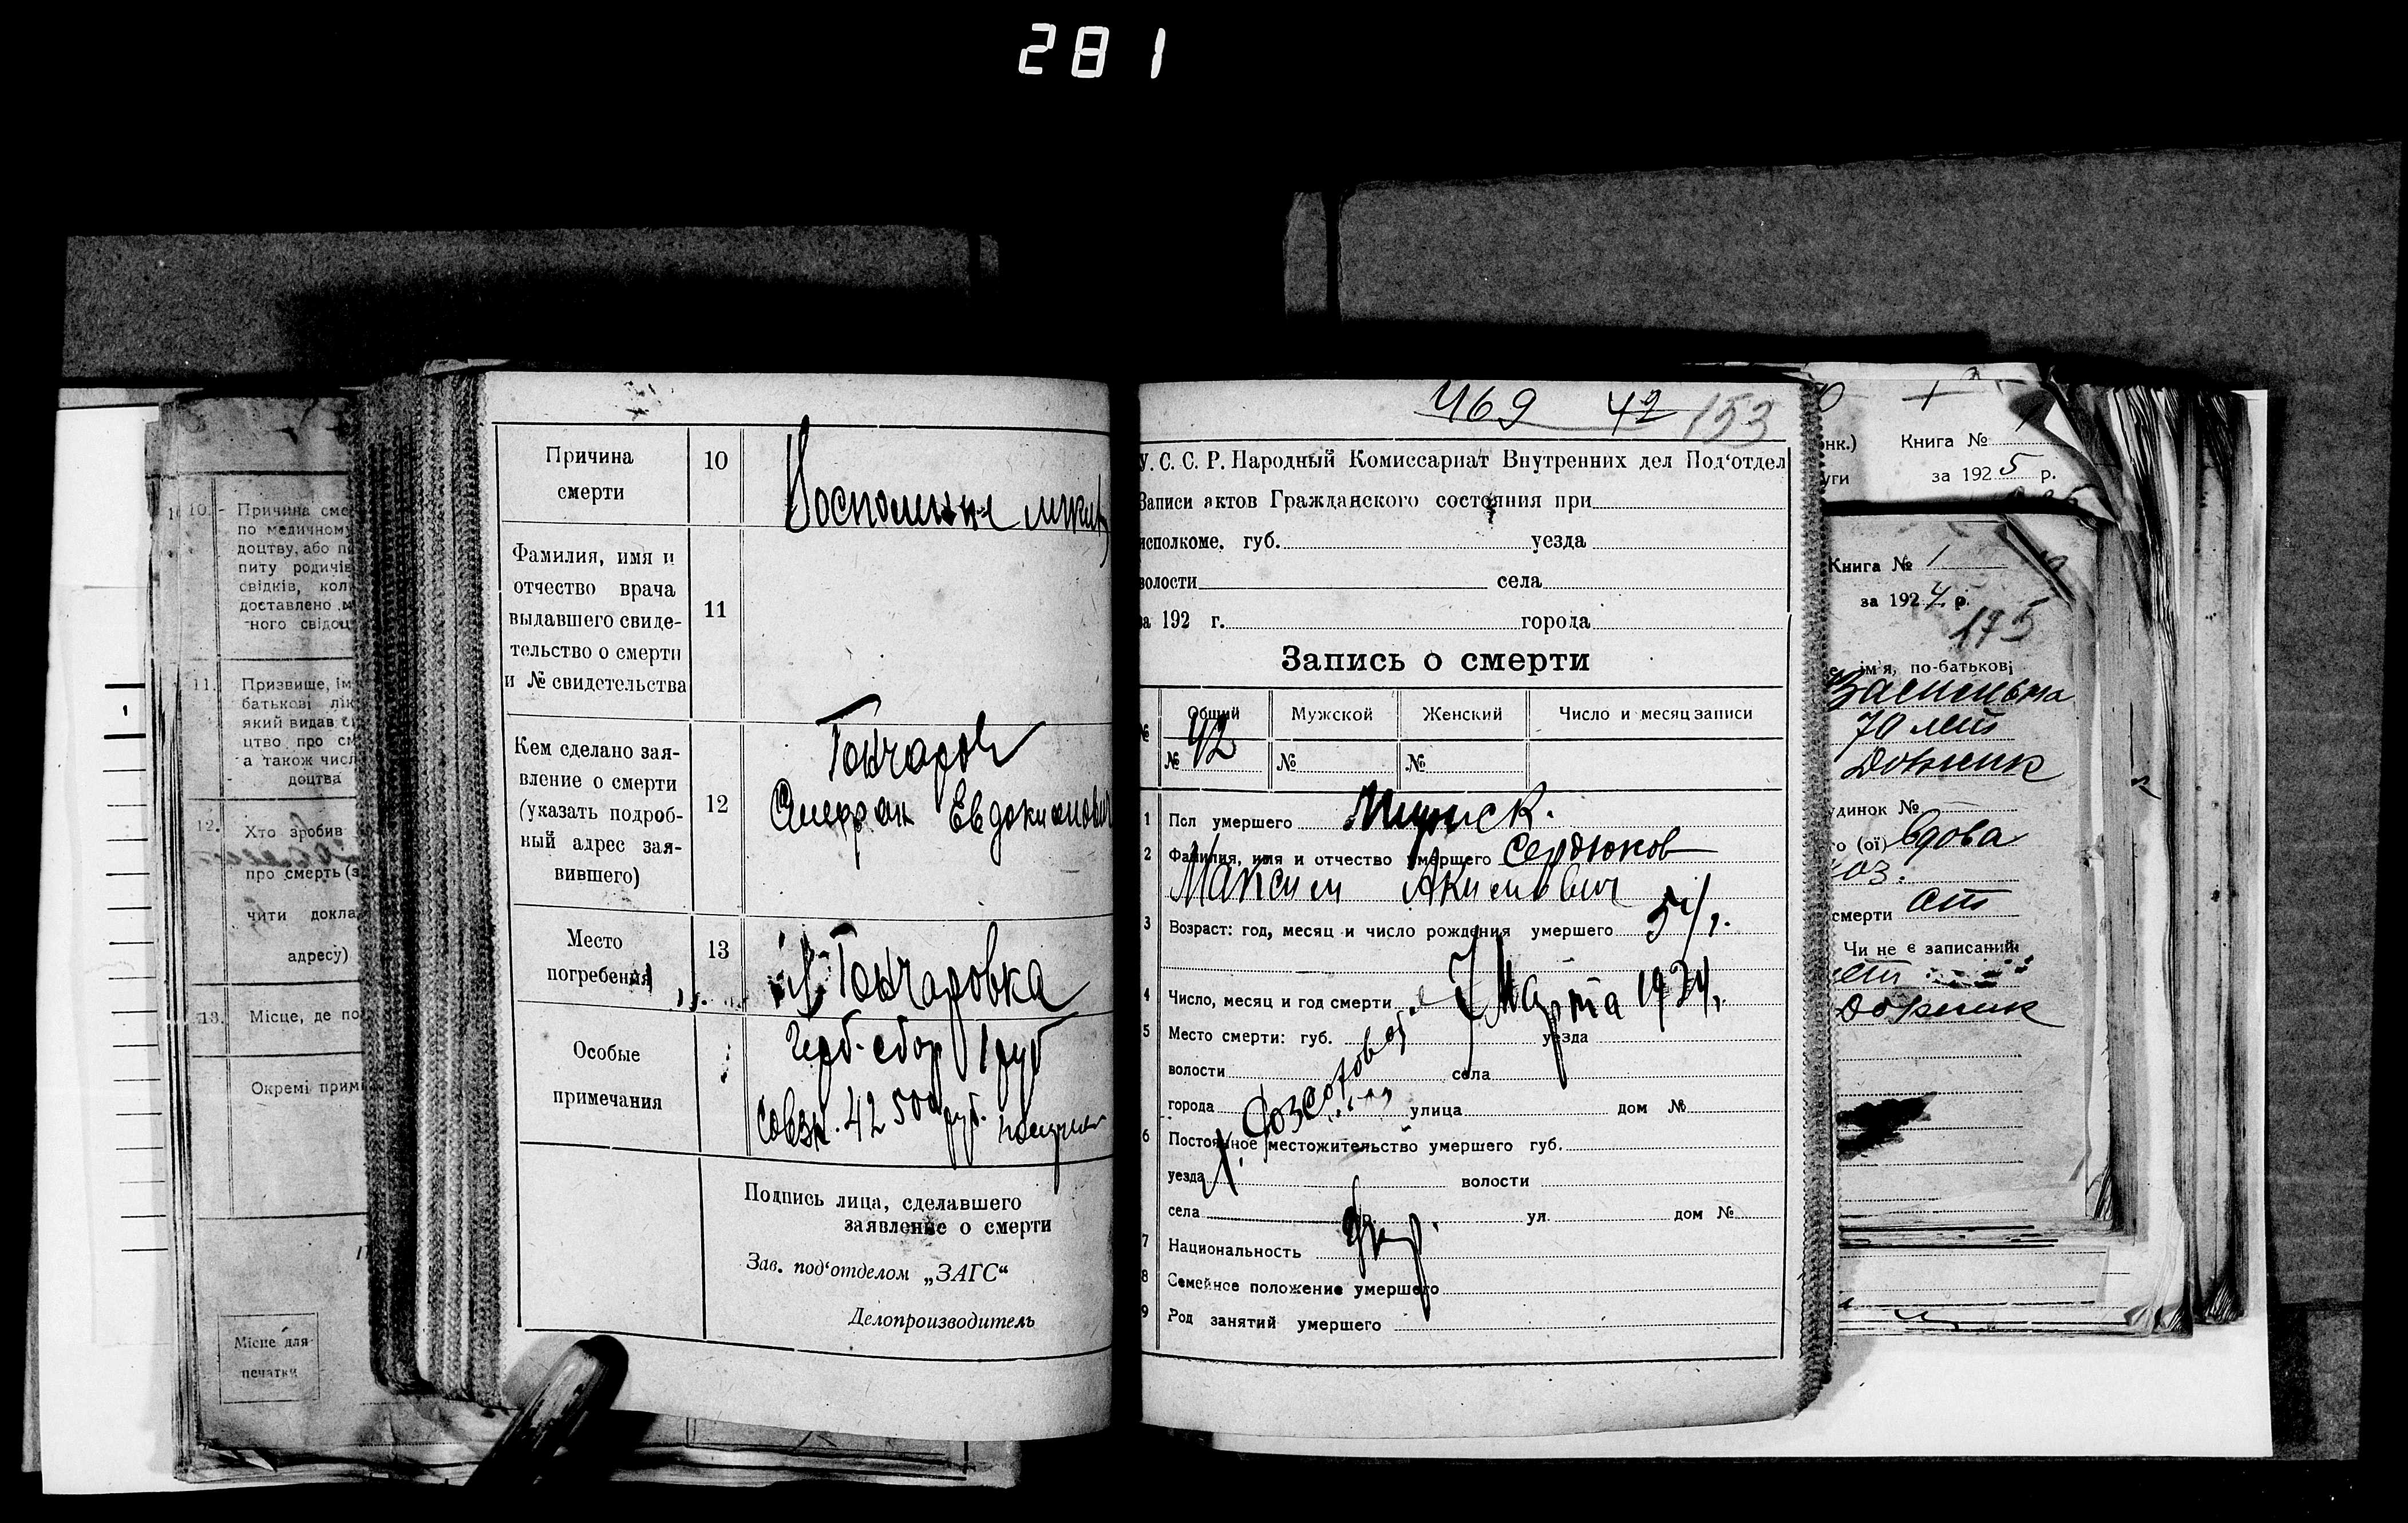 281
Причина смерти
10
Воспаление
Фамилия, имя и отчество врача выдавшего свиде-
тельство о смерти и № свидетельства
11
Кем сделано зая-
вление о смерти
(указать подроб-
ный адрес зая-
вившего)
12
Гончаров
Евдокимович
Место погребения
13
Гончаровка
Особые примечания
Герб. сбор 1 руб
42 500 руб.
Подпись лица, сделавшего
заявление о смерти
Зав. под‘отделом „ЗАГС“
Делопроизводитель
469 42 153
У. С. С. Р. Народный Комиссариат Внутренних дел Под‘отдел
Записи актов Гражданского состояния при
исполкоме. губ. уезда
волости села
за 192 г. города
Запись о смерти
№ Общий Мужской Женский Число и месяц записи
№ 42 № №
1 Пол умершего Мужск.
2 Фамилия, имя и отчество умершего Сердюков
Максим Акимович
3 Возраст: год, месяц и число рождения умершего
4 Число, месяц и год смерти 7 Марта 1924 г.
5 Место смерти: губ. уезда
волости села
города улица дом №
6 Постоянное местожительство умершего губ.
уезда волости
села ул. дом №
7 Национальность Укр.
8 Семейное положение умершего
9 Род занятий умершего
10. Причина сме
по медичному
доцтву, або
питу родичів
свідків, кол
доставлено
ного свідоц
11. Призвище, ім
батькові лік
який видав
цтво про см
а також числ
доцтва
12. Хто зробив
про смерть
чити докла
адресу)
13. Місце, де по
Окремі прим
Місце для
печатки
Книга №
за 1925 р.
Книга № 1
за 1924 р.
175
ім'я, по-батькові
70 лет
удинок №
вдова
смерти
Чи не є записаний